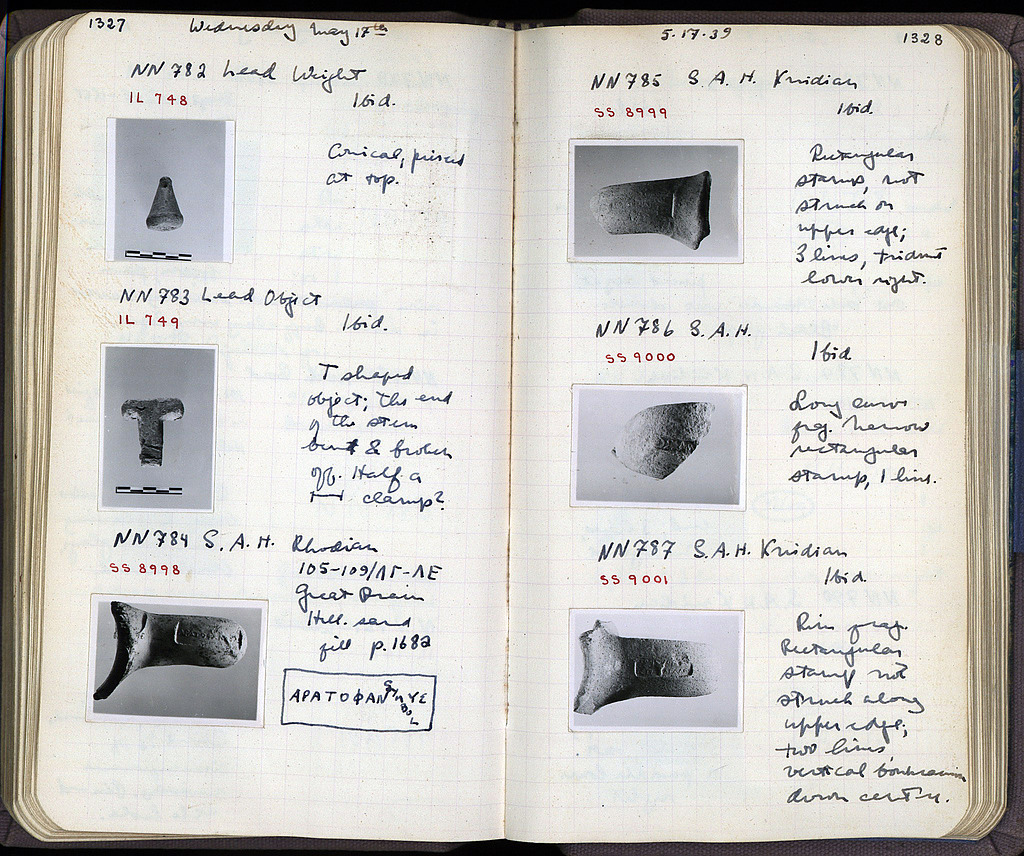 1327 Wednesday May 17th
NN 782 Lead Weight
IL 748 Ibid.
Conical, pierced
at top.
NN 783 Lead Object
IL 749 Ibid.
T shaped
object; the end
of the stem
bent & broken
off. Half a
clamp?
NN 784 S. A. H. Rhodian
SS 8998 105-109/ΛΓ-ΛΕ
Great Drain
Hell. sand
fill p. 1682
ΑΡΑΤΟΦΑΝ ΕΥΣ
Symbol
5.17.39 1328
NN 785 S. A. H. Knidian
SS 8999 Ibid.
Rectangular
stamp, not
struck on
upper edge;
3 lines, trident
lower right.
NN 786 S. A. H.
SS 9000 Ibid
Long curve
frg. Narrow
rectangular
stamp, 1 line.
NN 787 S. A. H. Knidian
SS 9001 Ibid.
Rim frag.
Rectangular
stamp not
struck along
upper edge;
two lines
vertical
down center.